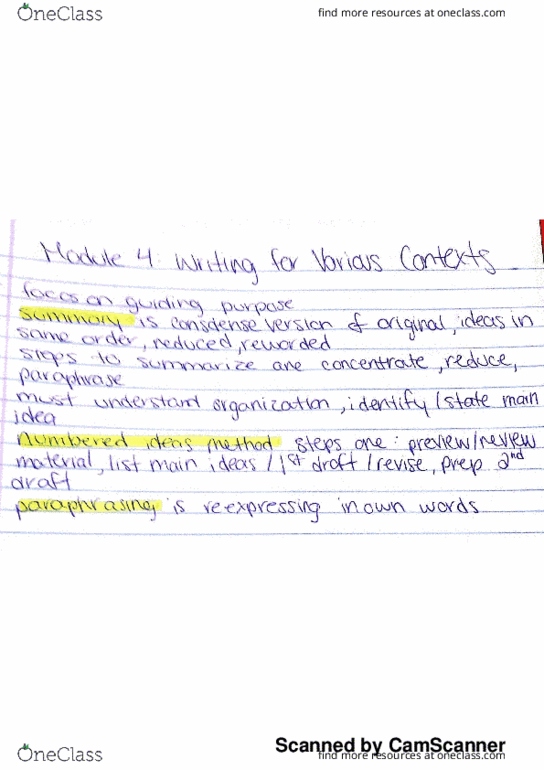 OneClass
find more resources at oneclass.com
Module 4: Writing for Various Contexts
focus on guiding purpose
summary is consdense version of original, ideas in
same order, reduced, reworded
steps to summarize are concentrate, reduce,
paraphrase
must understand organization, identify/state main
idea
numbered ideas method steps one: preview/review
material, list main ideas / 1st draft / revise, prep 2nd
draft
paraphrasing is re-expressing in own words
Scanned by CamScanner
OneClass
find more resources at oneclass.com